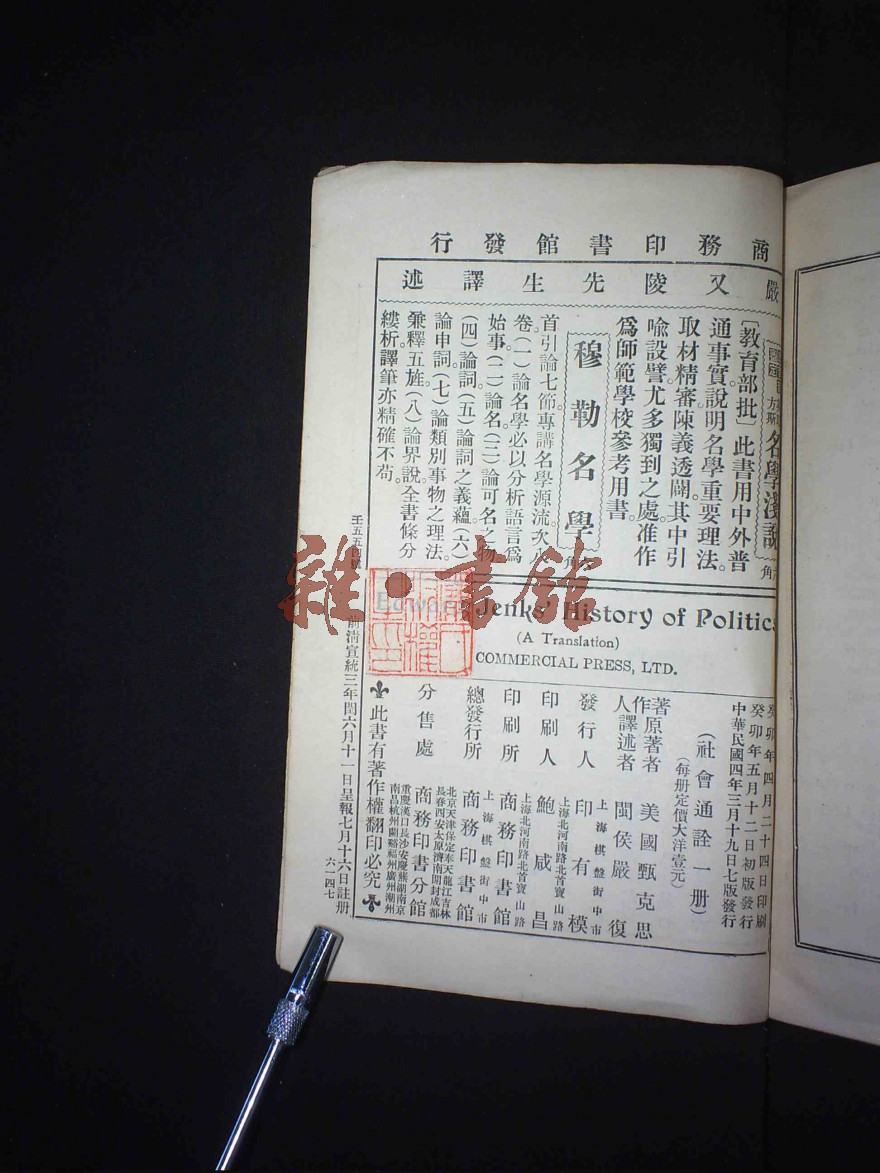 商務印書館發行
嚴又陵先生譯述
名學淺說
〔教育部批〕此書用中外普
通事實說明名學重要理法。
取材精審陳義透闢。其中引
喩設譬尤多獨到之處准作
爲師範學校參考用書。
穆勒名學
首引論七節專講名學源流。次八
卷。(一)論名學必以分析語言爲
始事。(二)論名。(三)論可名之物。
(四)論詞。(五)論詞之義蘊。(六)
論申詞。(七)論類別事物之理法。
兼釋五旌。(八)論界說。全書條分
縷析。譯筆亦精確不苟。
雜·書館
Edward Jenks' History of Politics
(A Translation)
COMMERCIAL PRESS, LTD.
癸卯年四月二十四日印刷
癸卯年五月十二日初版發行
中華民國四年三月十九日七版發行
(社會通詮一册)
(每册定價大洋壹元)
著作原著者 美國甄克思
人譯述者 閩侯嚴復
發行人 上海棋盤街中市 印有模
印刷人 上海北河南路北首寶山路 鮑咸昌
印刷所 上海北河南路北首寶山路 商務印書館
總發行所 上海棋盤街中市 商務印書館
分售處 北京天津保定奉天龍江吉林
長春西安太原濟南開封成都
商務印書分館
重慶漢口長沙安慶蕪湖南京
南昌杭州蘭谿福州廣州潮州
此書有著作權翻印必究
前清宣統三年閏六月十一日呈報七月十六日註册
六一四七